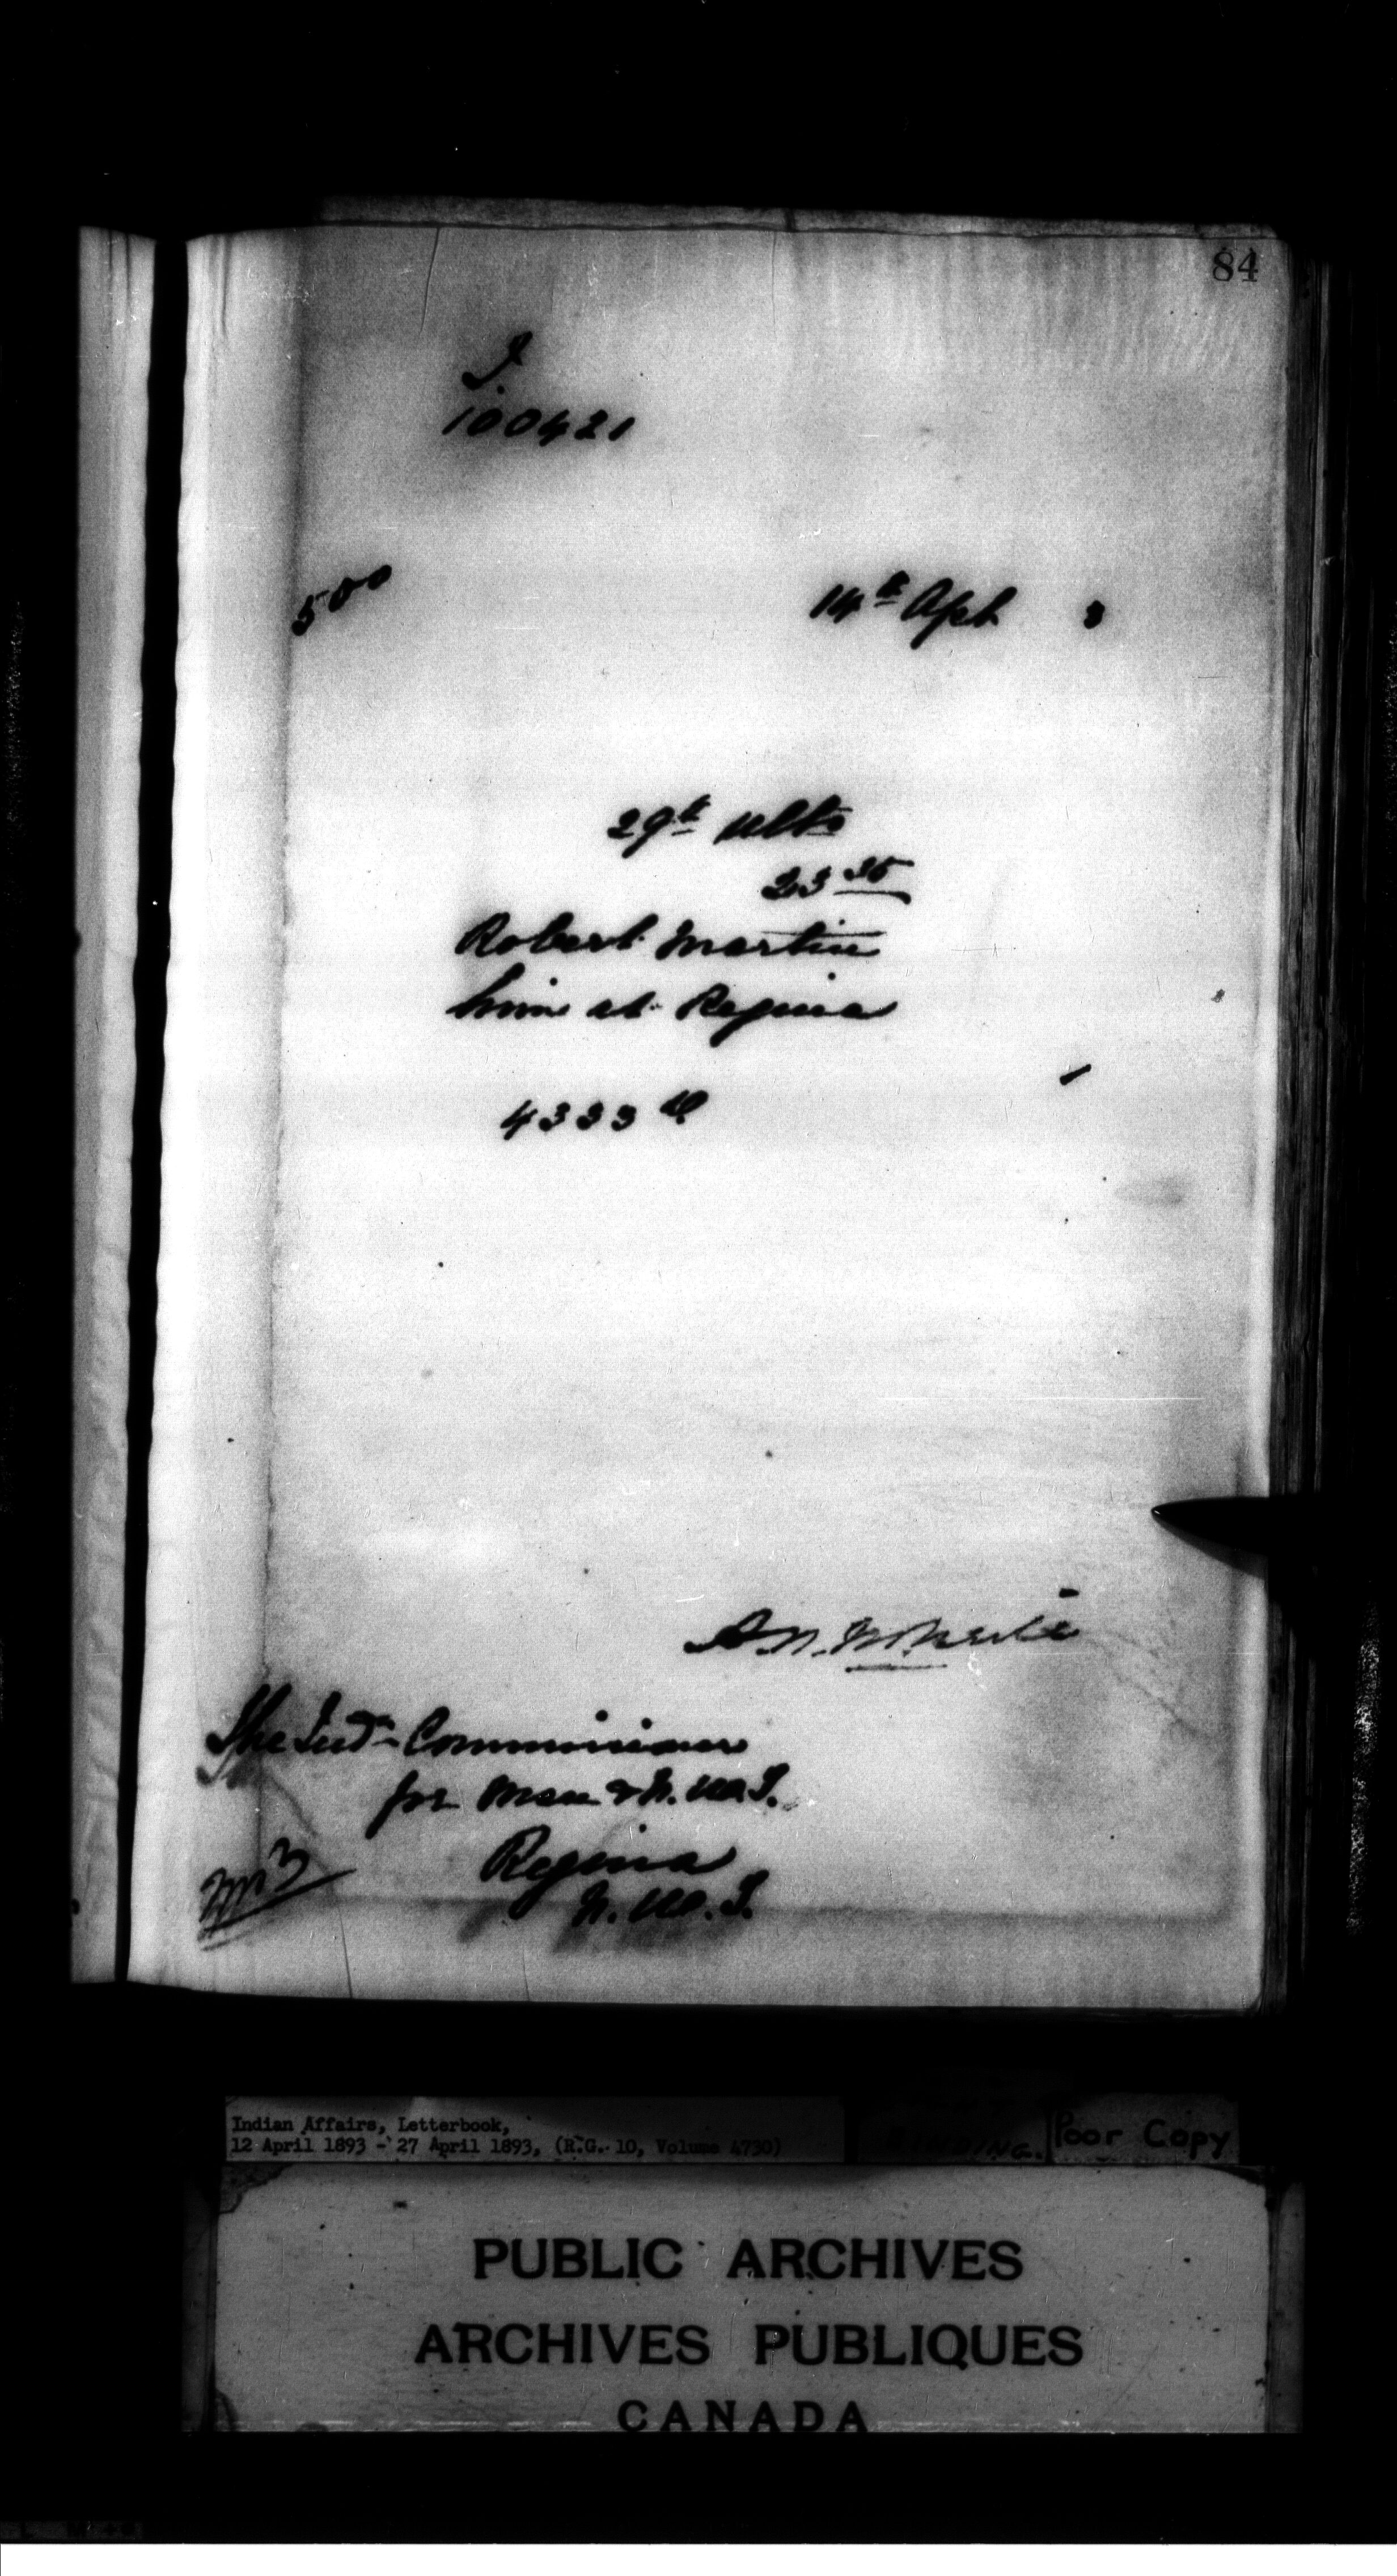 84
I.
100421
500
14th Apl. 3
29th Ulto
23 35
Robert Martin
him at Regina
4333
The Ind. Commissioner
for Man & N.W.T.
Regina
N.W.T.
Indian Affairs, Letterbook,
12 April 1893 - 27 April 1893, (R.G. 10, Volume 4730)
BINDING. Poor Copy
PUBLIC ARCHIVES
ARCHIVES PUBLIQUES
CANADA